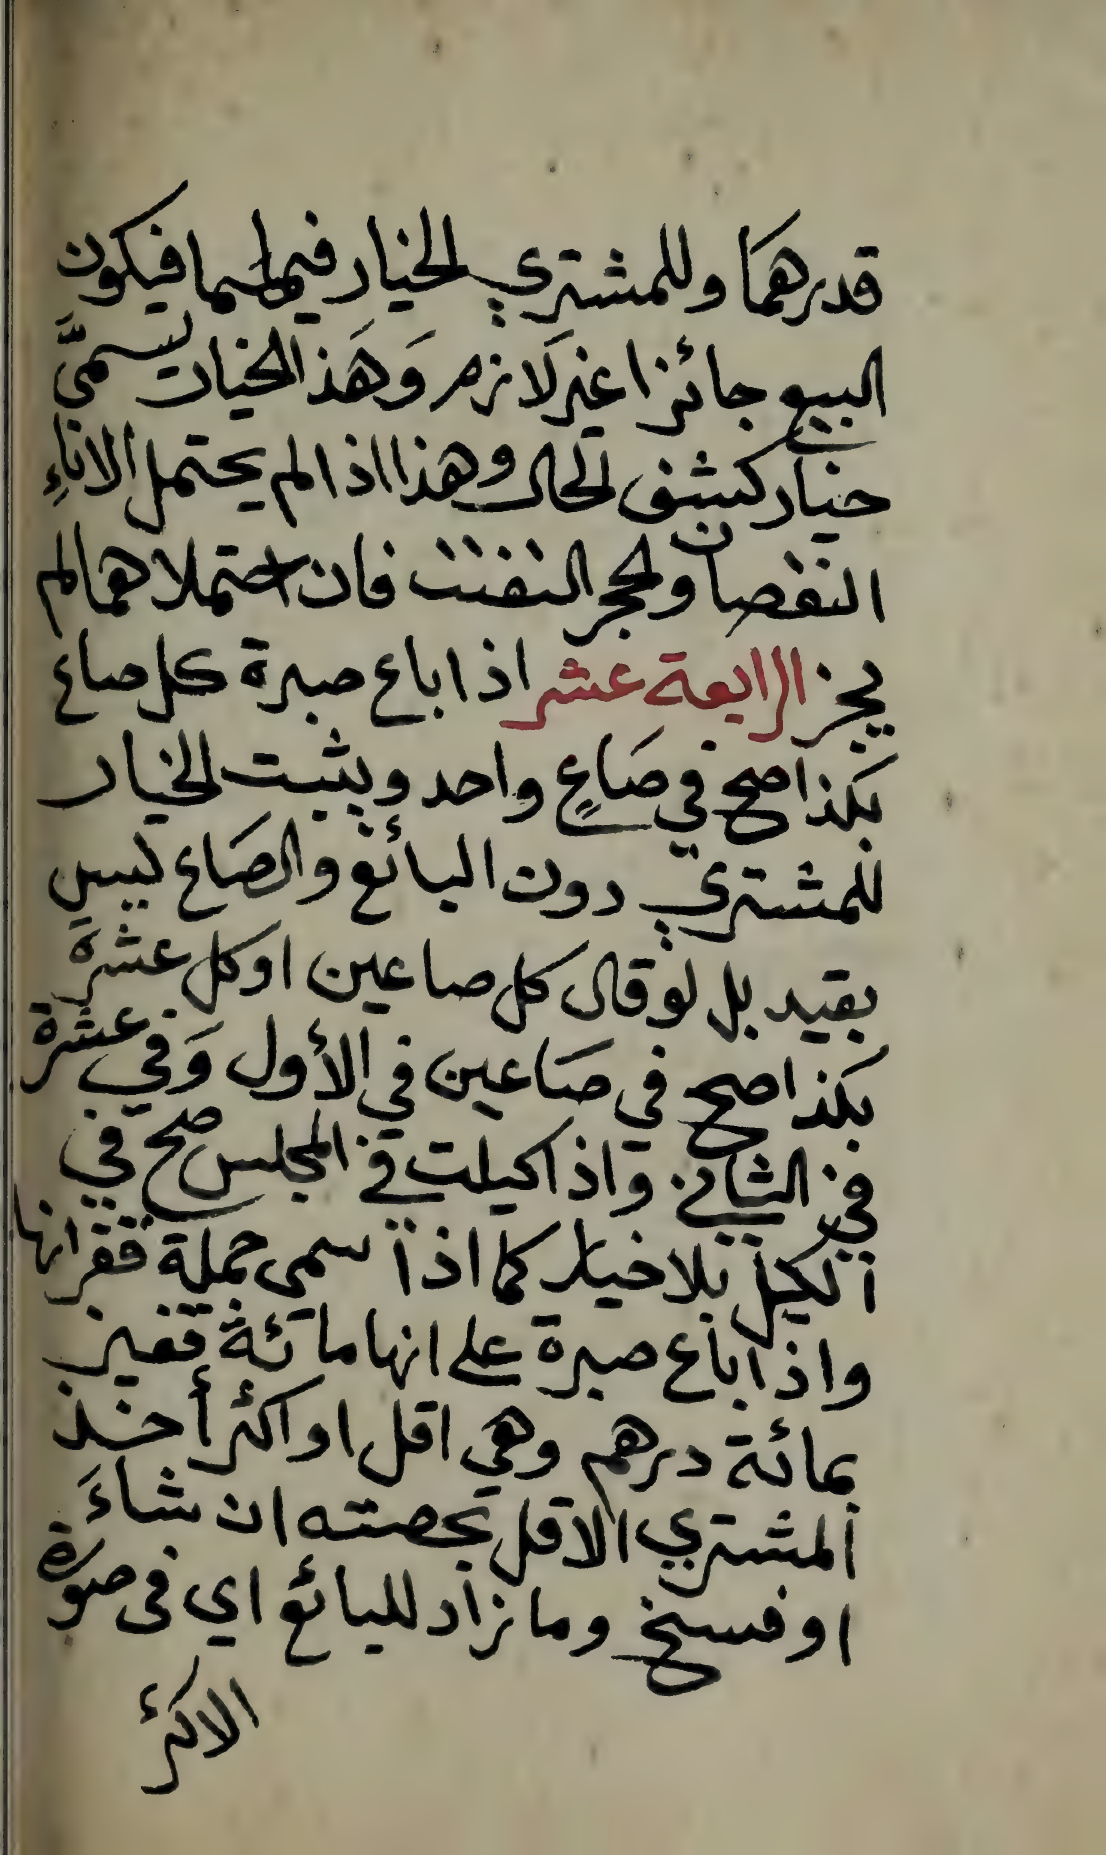 قدرهما وللمشتري الخيار فيهما فيكون
البيع جائزا غير لازم وَهَذا الخيار يسمىَّ
خيار كشف الحال وهذا اذا لم يحتمل الاناءِ
النقصان والحجر التفتت فان احتملاهما لم
يجز الرابعة عشر اذا باع صبرة كل صاع
بكذا صح في صَاعٍ واحد ويثبت الخيار
للمشتري دون البائع والصَاع ليس
بقيد بل لو قال كل صاعين او كل عشرة
بكذا صح في صَاعين في الأول وَفي عشرة
في الثاني واذا كيلت في المجلس صح في
الكل بلا خيار كما اذا سمى جملة قفزانها
واذا باع صبرة على انها مائة قفيز
بمائة درهم وهي اقل او اكثر أخذ
المشتري الاقل بحصته ان شاءَ
او فسخ وما زاد للبائع اي فى صورة
الاكثر